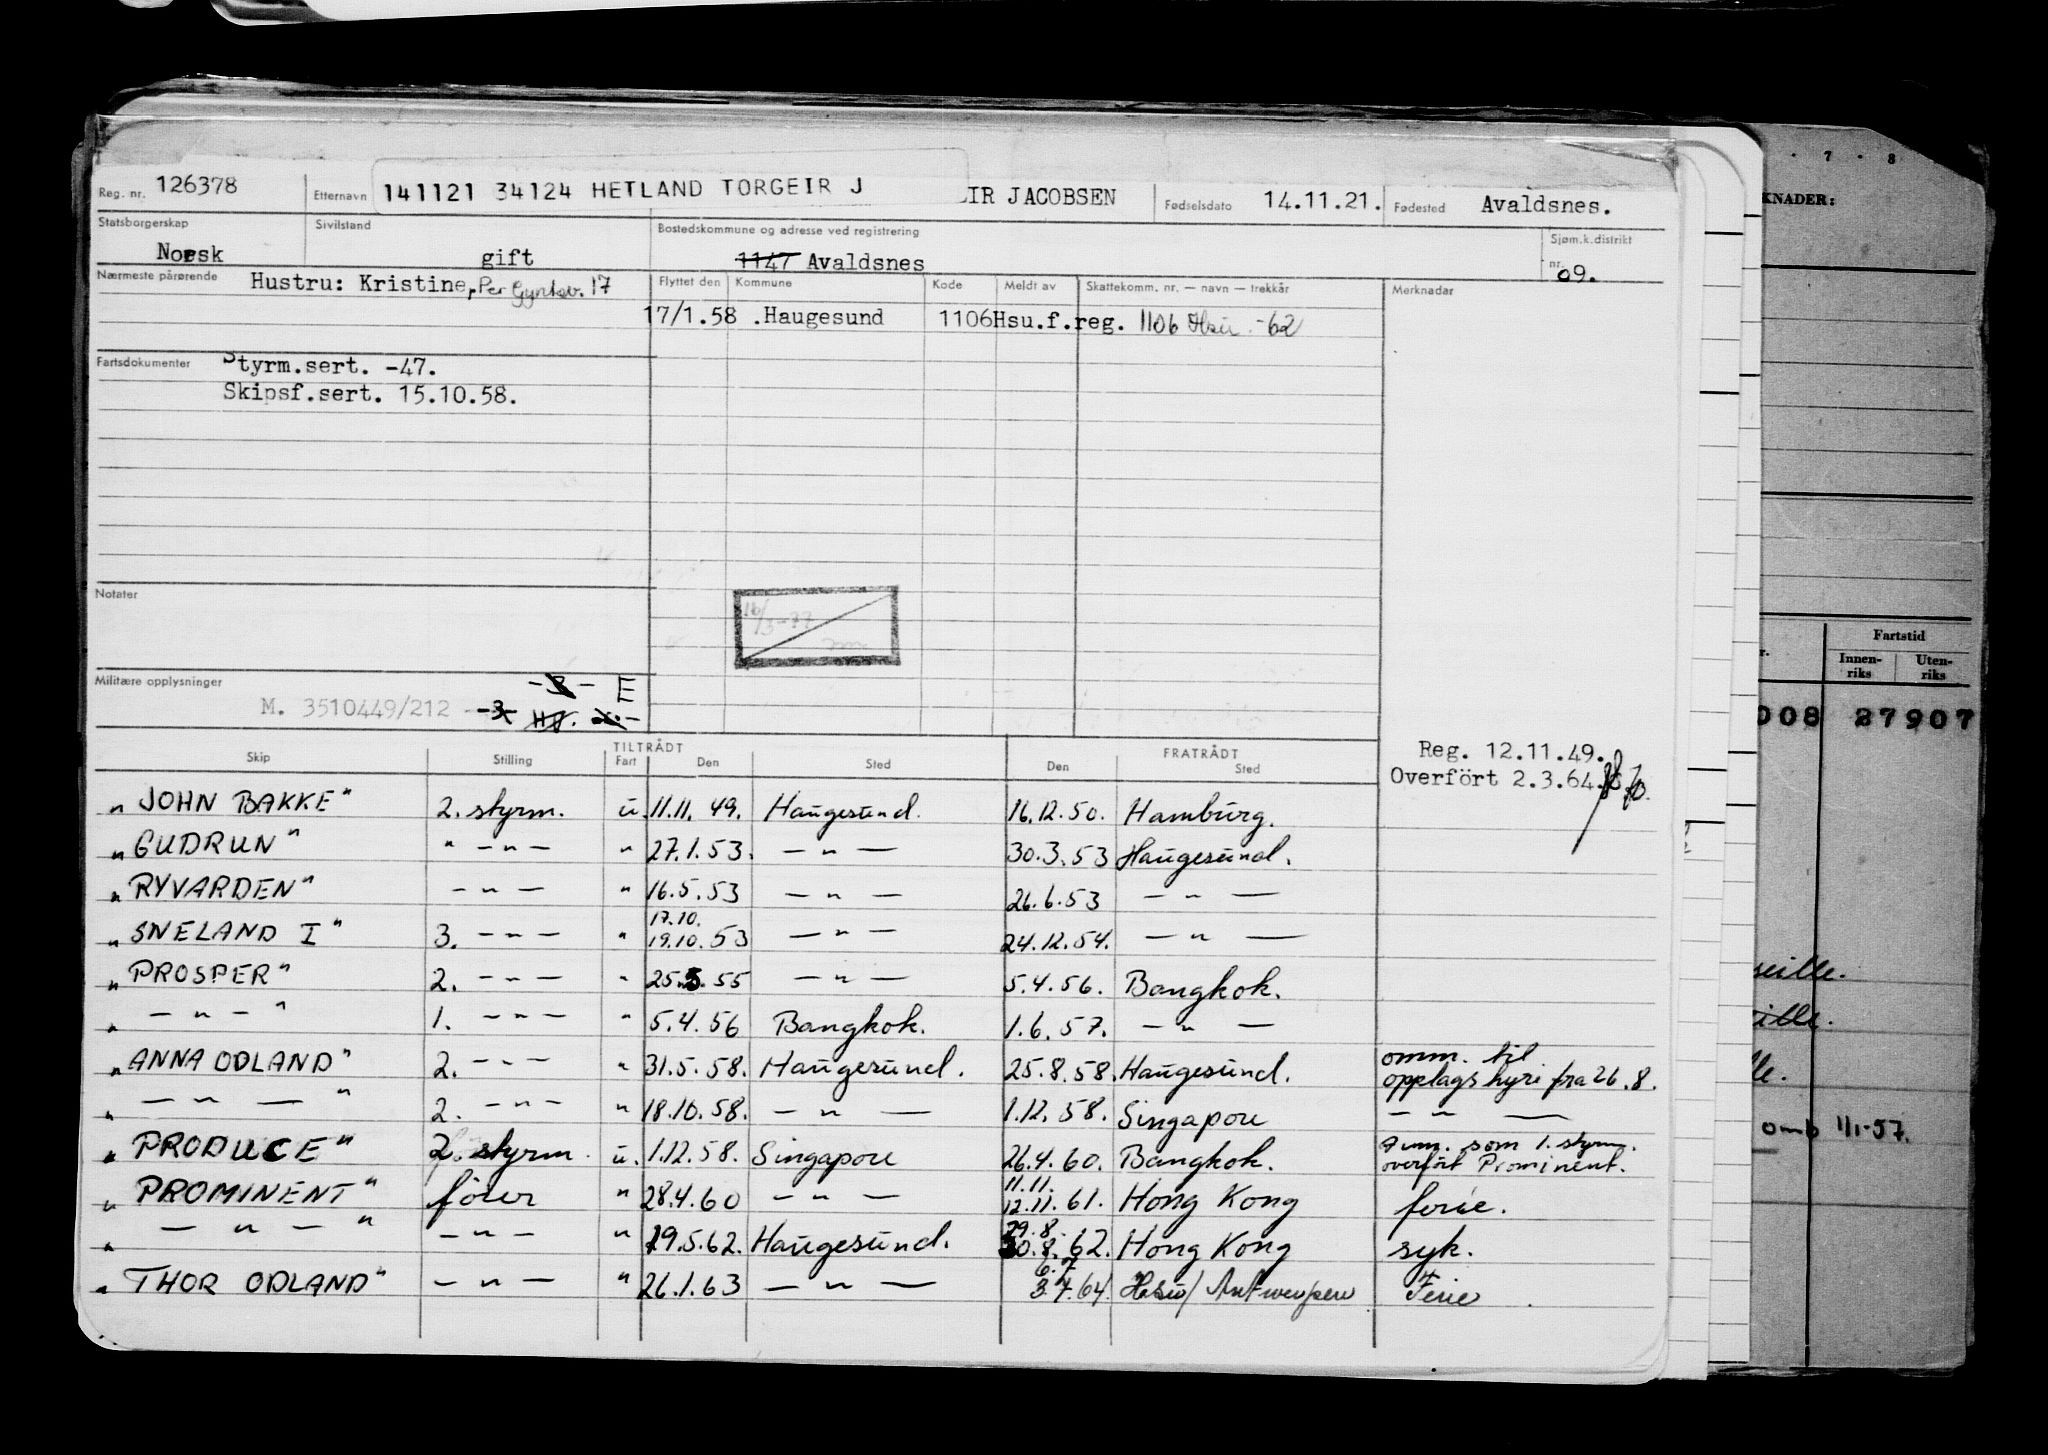 Reg. nr. 126378 Etternavn 141121 34124 HETLAND TORGEIR J EIR JACOBSEN Fødselsdato 14.11.21. Fødested Avaldsnes.
Statsborgerskap Norsk Sivilstand gift Bostedskommune og adresse ved registrering 1147 Avaldsnes Sjøm.k.distrikt nr. 09.
Nærmeste pårørende Hustru: Kristine, Per Gyntsv. 17
Flyttet den Kommune Kode Meldt av Skattekomm. nr. — navn — trekkår Merknader
17/1.58 .Haugesund 1106 Hsu.f.reg. 1106 Hsu -62
Fartsdokumenter Styrm.sert. -47.
Skipsf.sert. 15.10.58.
Notater
16/3-77
Militære opplysninger
M. 3510449/212 -3 E
Reg. 12.11.49.
Overfört 2.3.64.
Skip Stilling TILTRÅDT Fart Den Sted FRATRÅDT Den Sted
" JOHN BAKKE" 2. styrm. u. 11.11. 49. Haugesund. 16.12.50. Hamburg.
" GUDRUN" " — " — " 27.1.53. — " — 30.3.53 Haugesund.
" RYVARDEN" — " — " 16.5.53 — " — 26.6.53 — " —
" SNELAND I" 3. — " — " 17.10. 19.10.53 — " — 24.12.54. — " —
" PROSPER" 2. — " — " 25.5.55 — " — 5.4.56. Bangkok.
" — " — " 1. — " — " 5.4.56 Bangkok. 1.6.57. — " —
" ANNA ODLAND" 2. — " — " 31.5.58. Haugesund. 25.8.58. Haugesund. omm. til opplagshyre fra 26.8.
" — " — " 2. — " — " 18.10.58. — " — 1.12.58. Singapore — " —
" PRODUCE" 2. styrm. u. 1.12.58. Singapore 26.4.60. Bangkok. som 1. styrm. overfört Prominent.
" PROMINENT" förer " 28.4.60 — " — 11.11. 12.11.61. Hong Kong ferie.
" — " — " — " — " 29.5.62. Haugesund. 29.8. 30.8.62. Hong Kong syk.
" THOR ODLAND" — " — " 26.1.63 — " — 6.7 3.7.64. Hsu/ Antwerpen Ferie
. 7 . 8
KNADER:
Fartstid
r. Innen-riks Uten-riks
008 27907
seille.
ille.
lle.
omb 1/1-57.